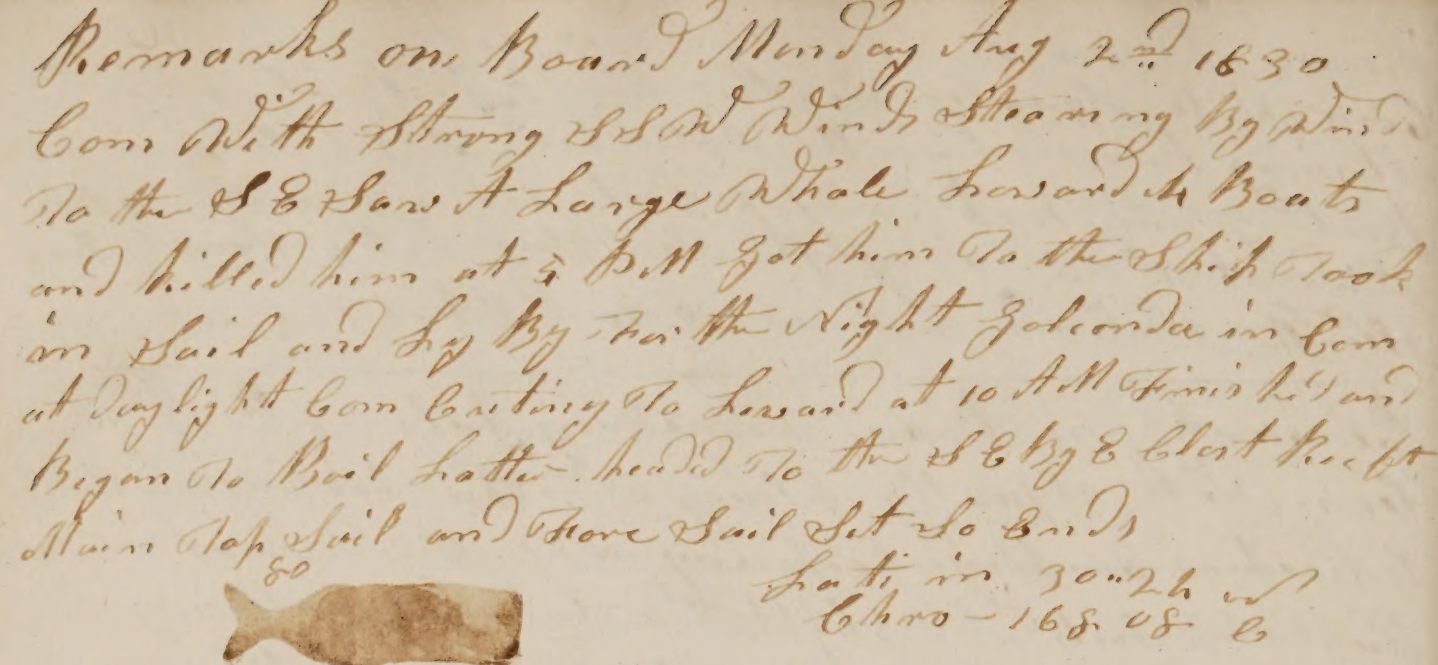 Remarks on Board Monday Aug 2nd 1830
Com With Strong SSW Winds Stearing By Wind
To the S E Saw A Large Whale Loward Boats
and killed him at PM Got him To the Ship Took
in Sail and Ly By For the Night Golconda in Com
at daylight Com Cuting To Loward at 10 AM Finishd and
Began To Boil Latter headed To the S E By E Clost Reeft
Main Top Sail and Fore Sail Set So Ends
80
Lati in 30"24
Chro - 168 08 E